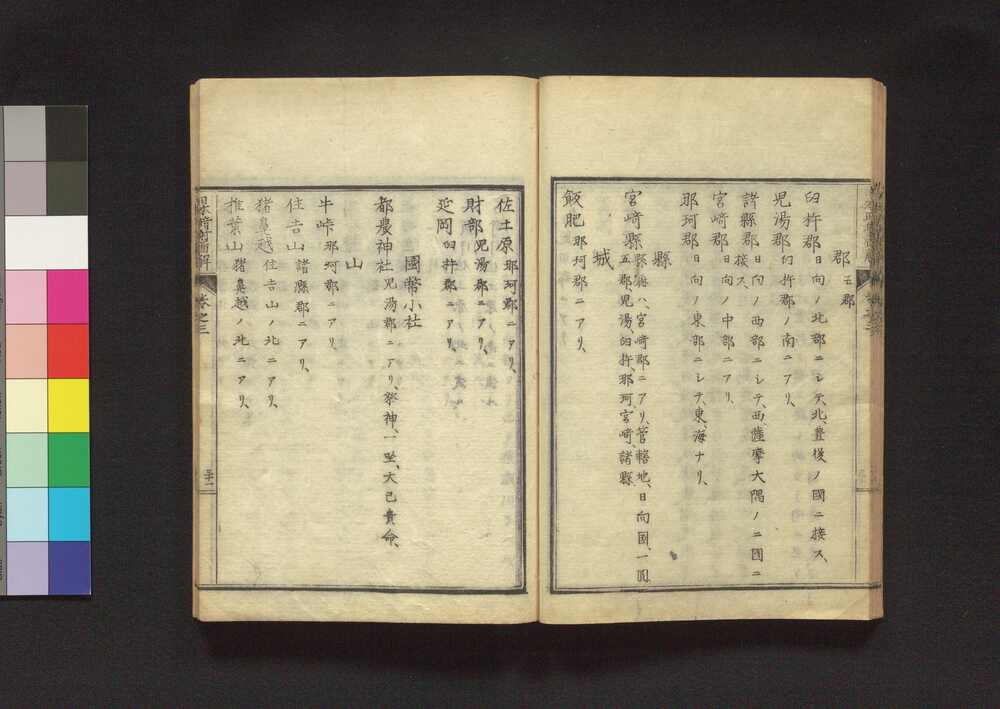 郡 五郡
臼杵郡 日向ノ北郡ニシテ、北、豊後ノ國ニ接ス、
児湯郡 臼杵郡ノ南ニアリ、
諸縣郡 日向ノ西部ニシテ、西、薩摩大隅ノ二國ニ
接ス、
宮﨑郡 日向ノ中部ニアリ、
那珂郡 日向ノ東部ニシテ、東、海ナリ、
縣
宮﨑縣 縣廳ハ、宮﨑郡ニアリ、管轄地、日向國、一圓
五郡、児湯、臼杵、那珂、宮﨑、諸縣、
城
飫肥 那珂郡ニアリ、
佐土原 那珂郡ニアリ、
財部 児湯郡ニアリ、
延岡 臼杵郡ニアリ、
國幣小社
都農神社 児湯郡ニアリ、祭神、一坐、大己貴命、
山
牛峠 那珂郡ニアリ、
住吉山 諸縣郡ニアリ、
猪鼻越 住吉山ノ北ニアリ、
推葉山 猪鼻越ノ北ニアリ、
巻之三
二十一